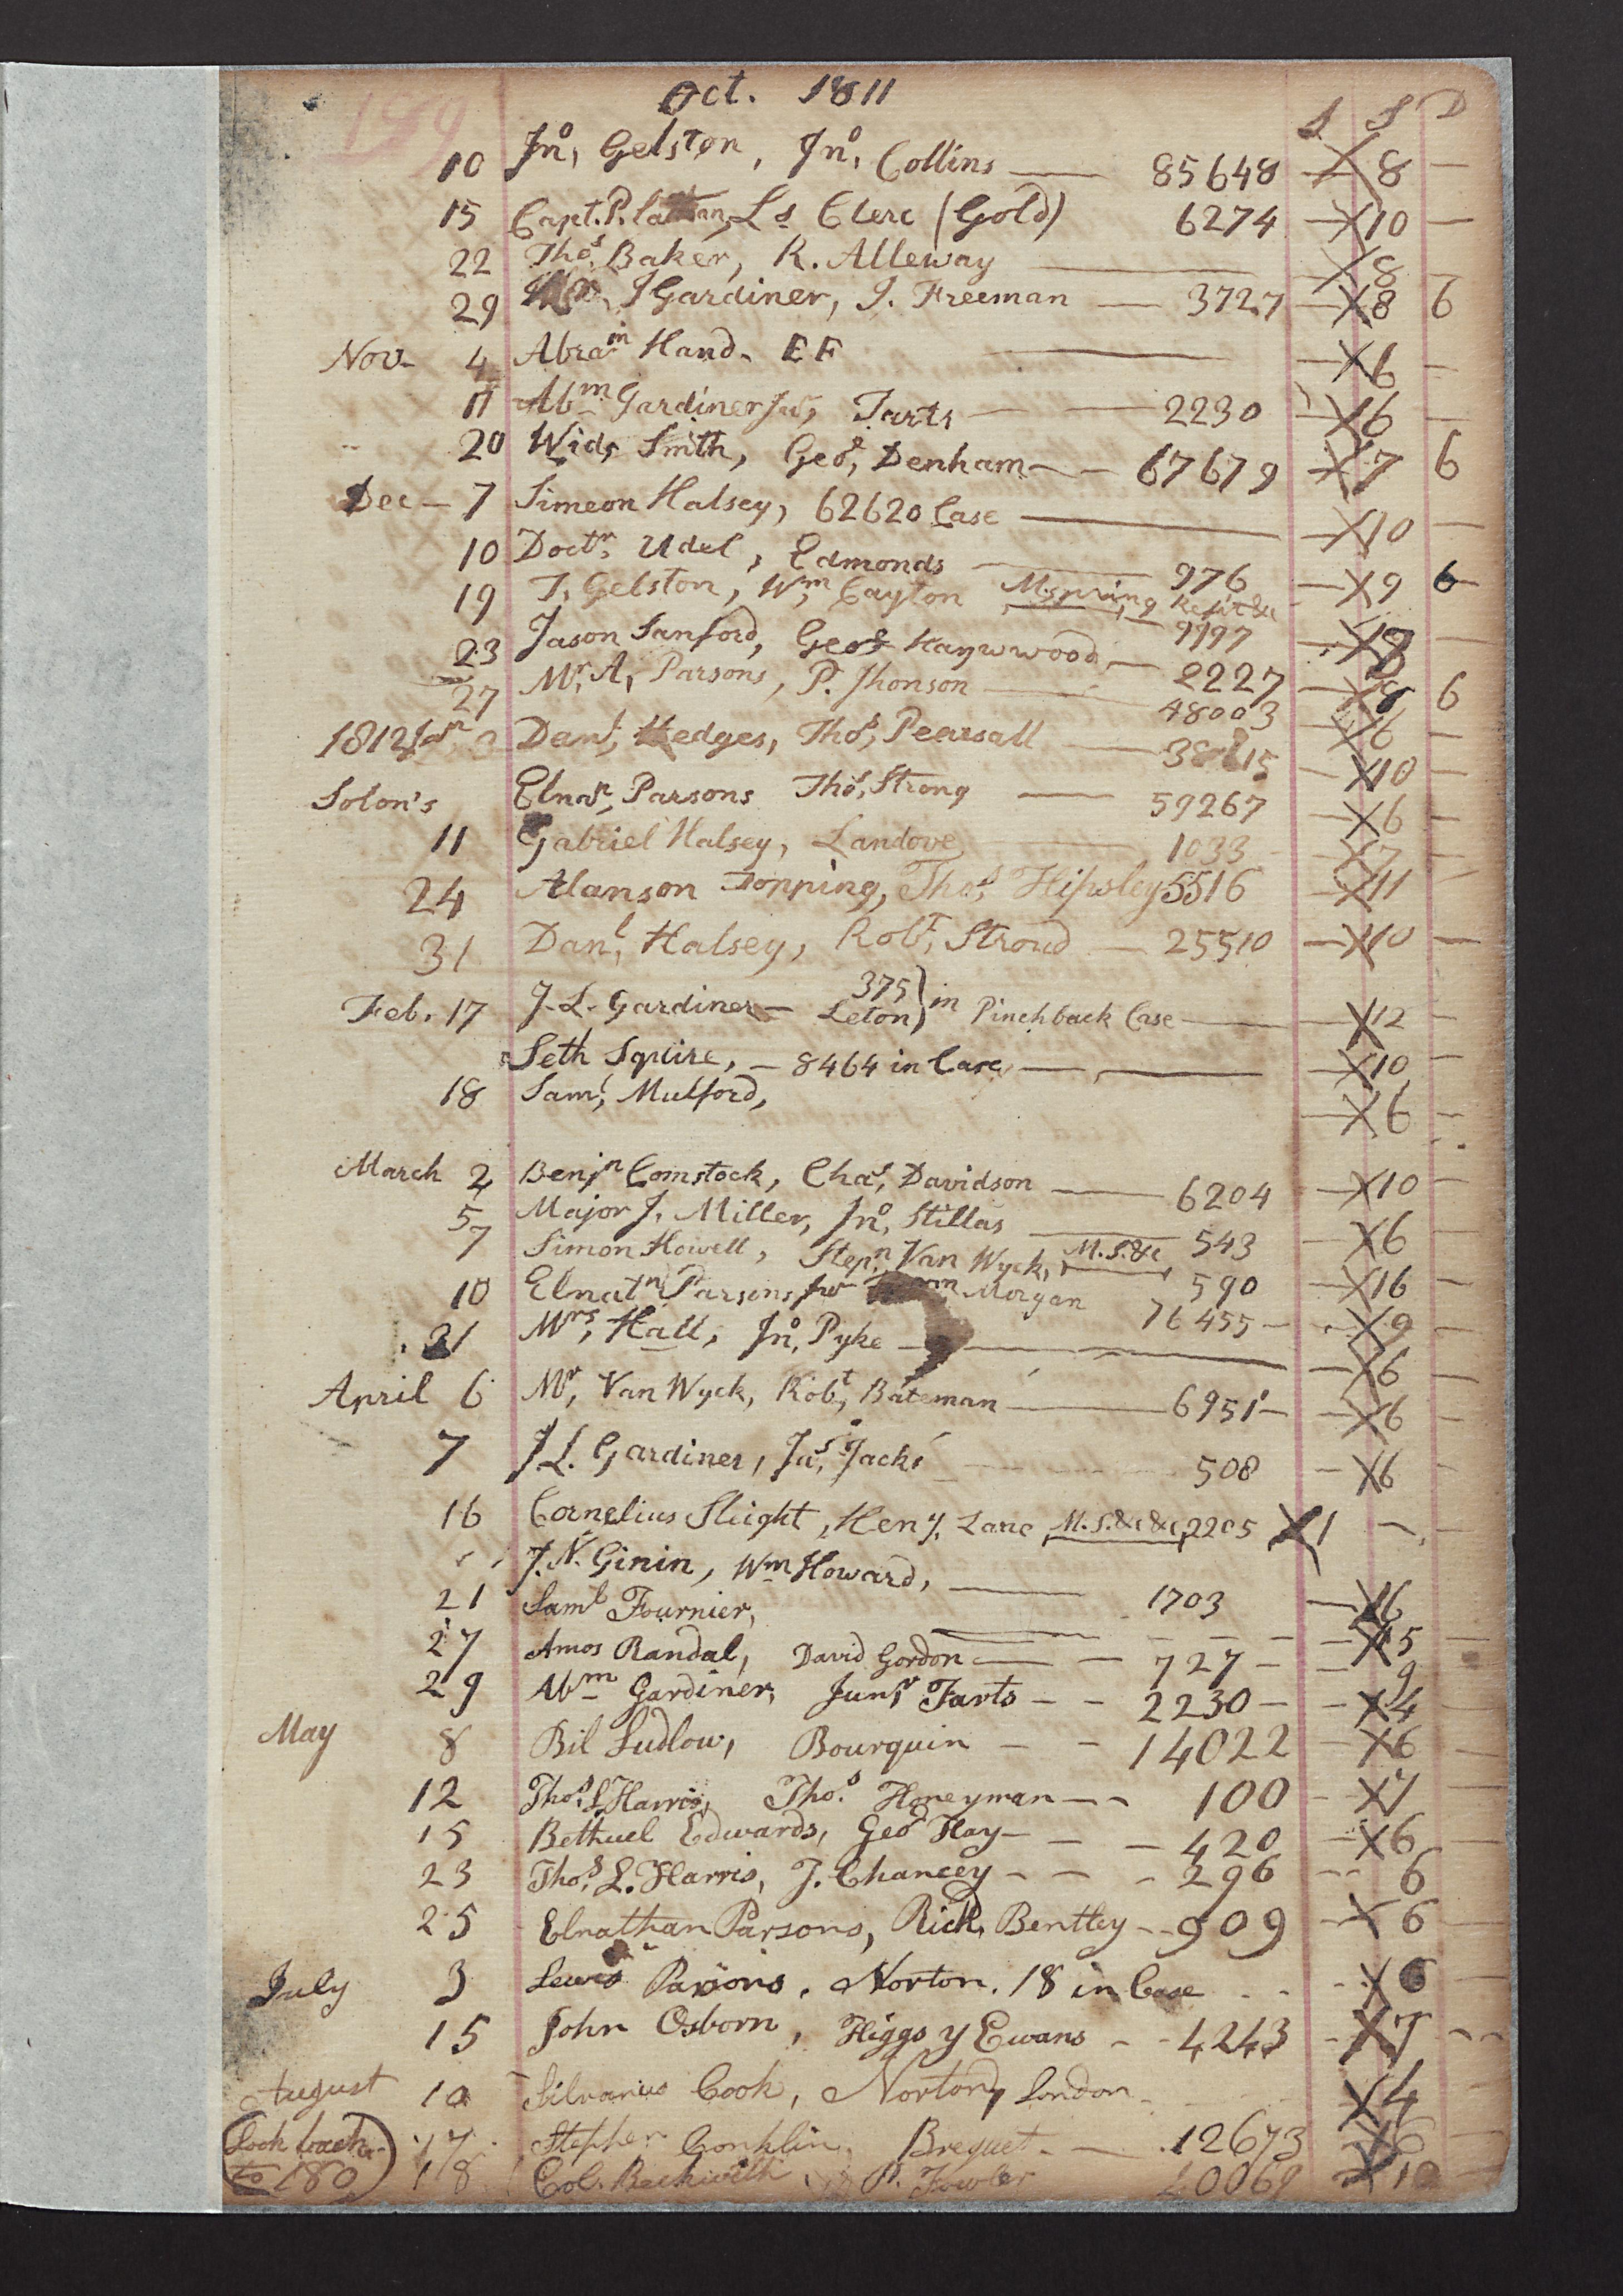 189
Oct. 1811
£ S D
10 Jno, Gelston, Jno, Collins — 85648 — X 8 —
15 Capt. P. Latham, Ls Clerc (Gold) 6274 — X 10 —
22 Thos, Baker, R. Alleway — X 8
29 J Gardiner, J. Freeman — 3727 — X 8 6
Nov- 4 Abram Hand. EF — X 6 —
11 Abm Gardiner Jur, Tarts — — 2230 — X 6 —
20 Wid, Smith, Geoe, Denham — — 67679 — X 7 6
Dec — 7 Simeon Halsey, 62620 Case — X 10 —
10 Doctr, Udel, Edmonds — 976 — X 9 6
19 J. Gelston, Wm, Cayton M.spring Refit &c 9797 — X —
23 Jason Sanford, Geoe Haywwood — 2227 — X 8 6
27 Mr, A, Parsons, P. Jhonson — 48003 — X 6 —
1812 Jan Danl, Hedges, Thos, Pearsall — 38615 — X 10 —
Solon's Elnan, Parsons Thos, Strong — 59267 — X 6 —
11 Gabriel Halsey, Landove 1033 — X 7 —
24 Alanson Topping, Thos, Hipsley 5516 — X 11 —
31 Danl, Halsey, Robt, Stroud — 25510 — X 10 —
Feb. 17 J. L. Gardiner — 375 Leton) in Pinchback Case — X 12 —
Seth Squire, — 8464 in Case — X 10 —
18 Saml, Mulford, — X 6 —
March 2 Benjn Comstock, Chas, Davidson — 6204 — X 10 —
5 Major J. Miller, Jno, Stillas — 543 — X 6 —
7 Simon Howell, Stepn, Van Wyck, M.S.&c 590 — X 16 —
10 Elnatn Parsons for Morgan 76455 — X 9 —
31 Mrs, Hall, Jno, Pyke — X 6 —
April 6 Mr, Van Wyck, Robt, Bateman — 6951 — X 6 —
7 J L. Gardiner, Jas, Jack 508 — X 6 —
16 Cornelius Slight, Heny, Lane, M.S.&c &c, 2205 X 1 —
J. N. Ginin, Wm Howard, — 1703 — X 6
21 Saml Fournier, — X 5 —
27 Amos Randal, David Gordon — — 727 — — 9
29 Abm Gardiner, Junr Tarts — — 2230 — — X 4
May 8 Bil Ludlow, Bourquin — — 14022 — X 6 —
12 Thos. L Harris, Thos. Honeyman — — 100 — X 7
15 Bethuel Edwards, Geo Hay — — — 420 — X 6
23 Thos. L. Harris, J. Chancey — — — 296 — — 6
25 Elnathan Parsons, Richd, Bentley — 909 — X 6
July 3 Lewis Parsons. Norton. 18 in Case - - - X 6
15 John Osborn, Higgs y Ewans — — 4243 — X 7 — —
August 10 Silvanus Cook, Norton, London — X 4
(Look back 17 Stephen Conklin, Breguet — — 12673 X 6
to 180) 18 Col. Beckwith P. Fowler 40069 — X 10